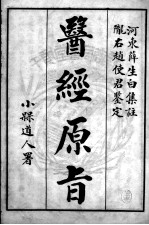 河東薛生白集註
隴右趙使君鑒定
醫經原旨
小騄道人署